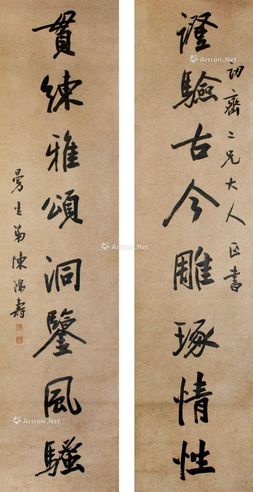 證驗古今雕琢情性
二兄大人正書
貫練雅頌洞鑒風騷
曼生弟陳鴻壽
Artron.Net
Artron.Net
Artron.Net
Artron.Net
Artron.Net
Artron.Net